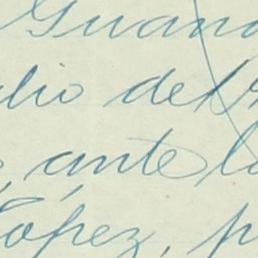 Guana
lio del
, ante la
López, p